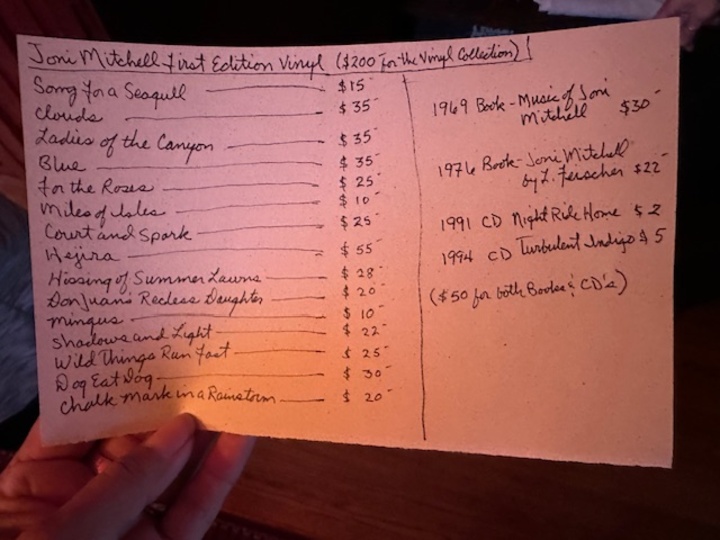 Joni Mitchell First Edition Vinyl ($200 for the Vinyl Collection)
Song for a Seagull $15
Clouds $35
Ladies of the Canyon $35
Blue $35
For the Roses $25
Miles of Isles $10
Court and Spark $25
Hejira $55
Hissing of Summer Lawns $28
Don Juan's Recless Daughter $20
Mingus $10
Shadows and Light $22
Wild Things Run Fast $25
Dog Eat Dog $30
Chalk Mark in a Rainstorm $20
1969 Book - Music of Joni
Mitchell $30
1976 Book - Joni Mitchell
by L. Fleischer $22
1991 CD Night Ride Home $2
1994 CD Turbulent Indigo $5
($50 for both Books & CD's)